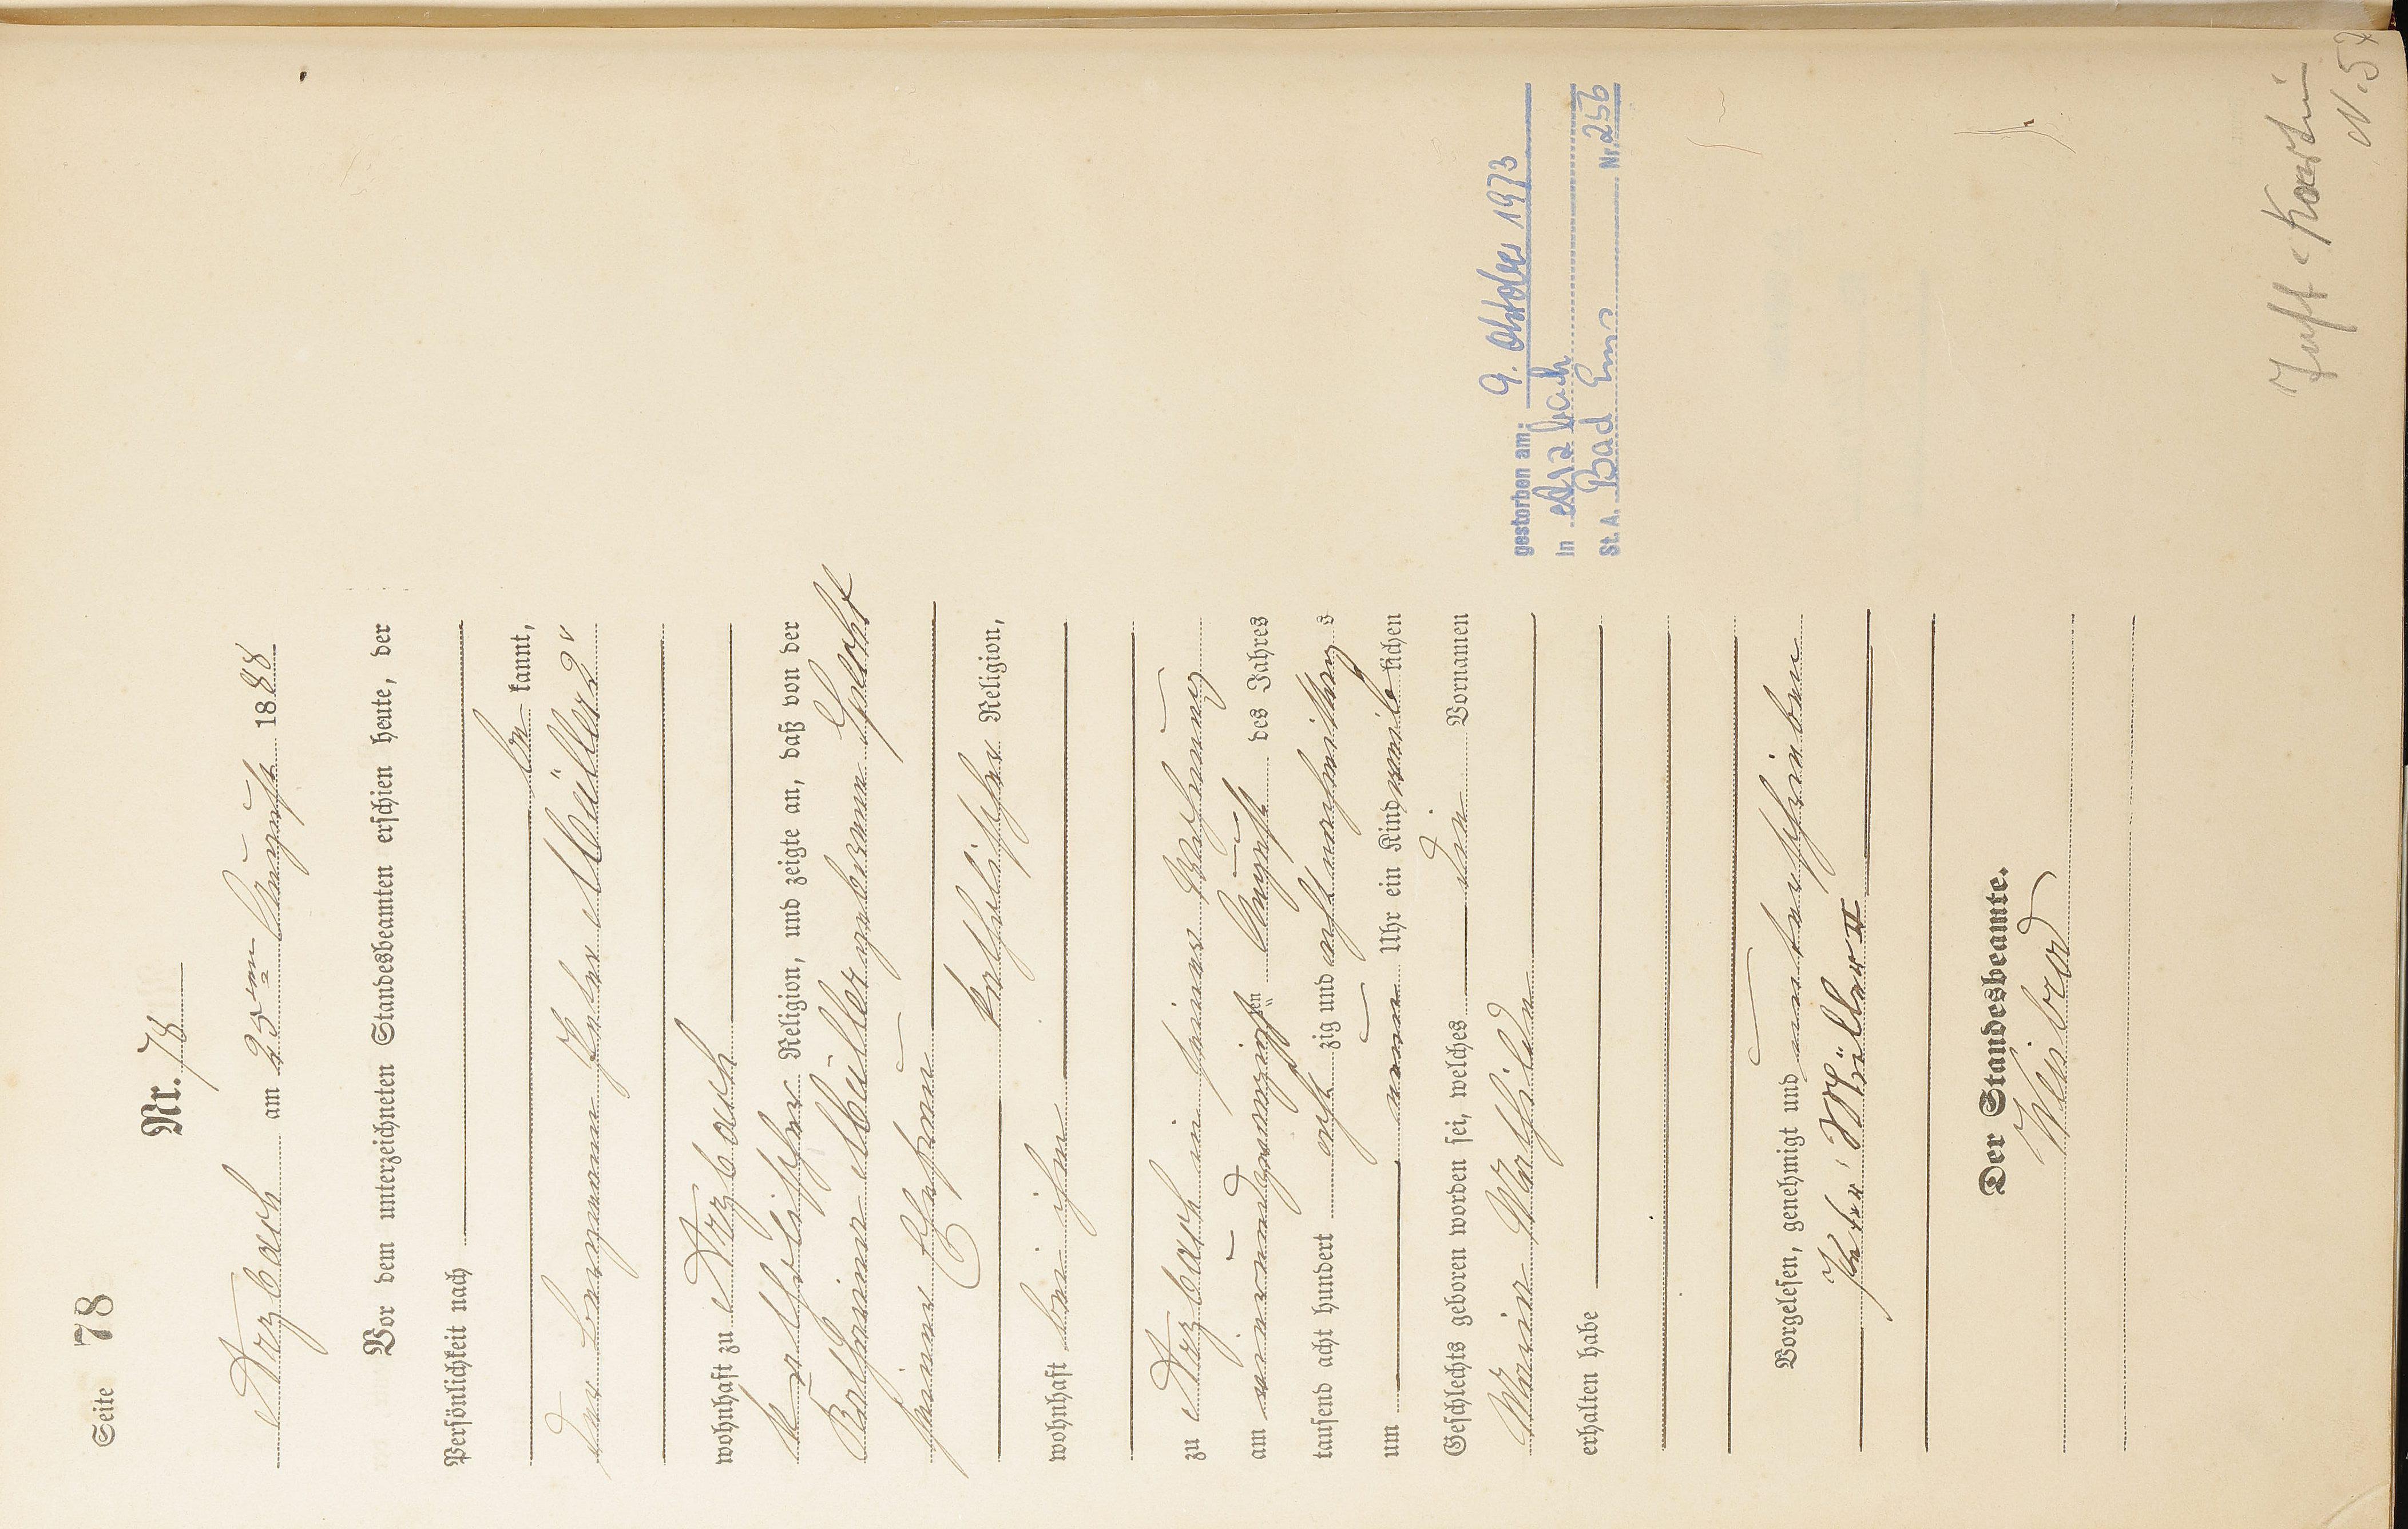 Seite 78
Nr. 78
Arzbach am 25ten August 1888
Vor dem unterzeichneten Standesbeamten erschien heute, der
Persönlichkeit nach
be kannt,
der Bergmann Peter Müller 2r
wohnhaft zu Arzbach
katholischer Religion, und zeigte an, daß von der
Katharina Müller geborene Specht
seiner Ehefrau
katholischer Religion,
wohnhaft bei ihm
zu Arzbach in seiner Wohnung
am vierundzwanzigsten August des Jahres
tausend acht hundert acht zig und acht nachmittags
um neun Uhr ein Kind weib lichen
Geschlechts geboren worden sei, welches den Vornamen
Maria Mathilde
erhalten habe
Vorgelesen, genehmigt und unterschrieben
Peter Müller II
Der Standesbeamte.
gestorben am: 9. Oktober 1973
in Arzbach
St. A. Bad Ems Nr. 256
N. 57